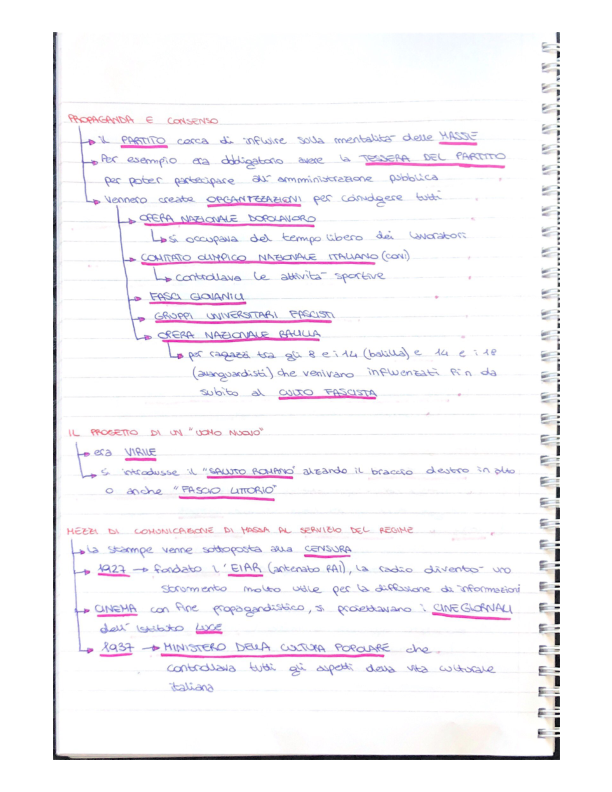 PROPAGANDA E CONSENSO
IL PARTITO cerca di influire sulla mentalità delle MASSE
Per esempio era obbligatorio avere la TESSERA DEL PARTITO
per poter partecipare all'amministrazione pubblica
Vennero create ORGANIZZAZIONI per coinvolgere tutti
OPERA NAZIONALE DOPOLAVORO
Si occupava del tempo libero dei lavoratori
COMITATO OLIMPICO NAZIONALE ITALIANO (coni)
controllava le attività sportive
FASCI GIOVANILI
GRUPPI UNIVERSITARI FASCISTI
OPERA NAZIONALE BALILLA
per ragazzi tra gli 8 e i 14 (balilla) e 14 e i 18
(avanguardisti) che venivano influenzati fin da
subito al CULTO FASCISTA
IL PROGETTO DI UN "UOMO NUOVO"
era VIRILE
si introdusse il "SALUTO ROMANO" alzando il braccio destro in alto
o anche "FASCIO LITTORIO"
MEZZI DI COMUNICAZIONE DI MASSA AL SERVIZIO DEL REGIME
La stampa venne sottoposta alla CENSURA
1927 → fondato l'EIAR (antenato RAI), la radio diventò uno
strumento molto utile per la diffusione di informazioni
CINEMA con fine propagandistico, si proiettavano i CINEGIORNALI
dell'istituto LUCE
1937 → MINISTERO DELLA CULTURA POPOLARE che
controllava tutti gli aspetti della vita culturale
italiana